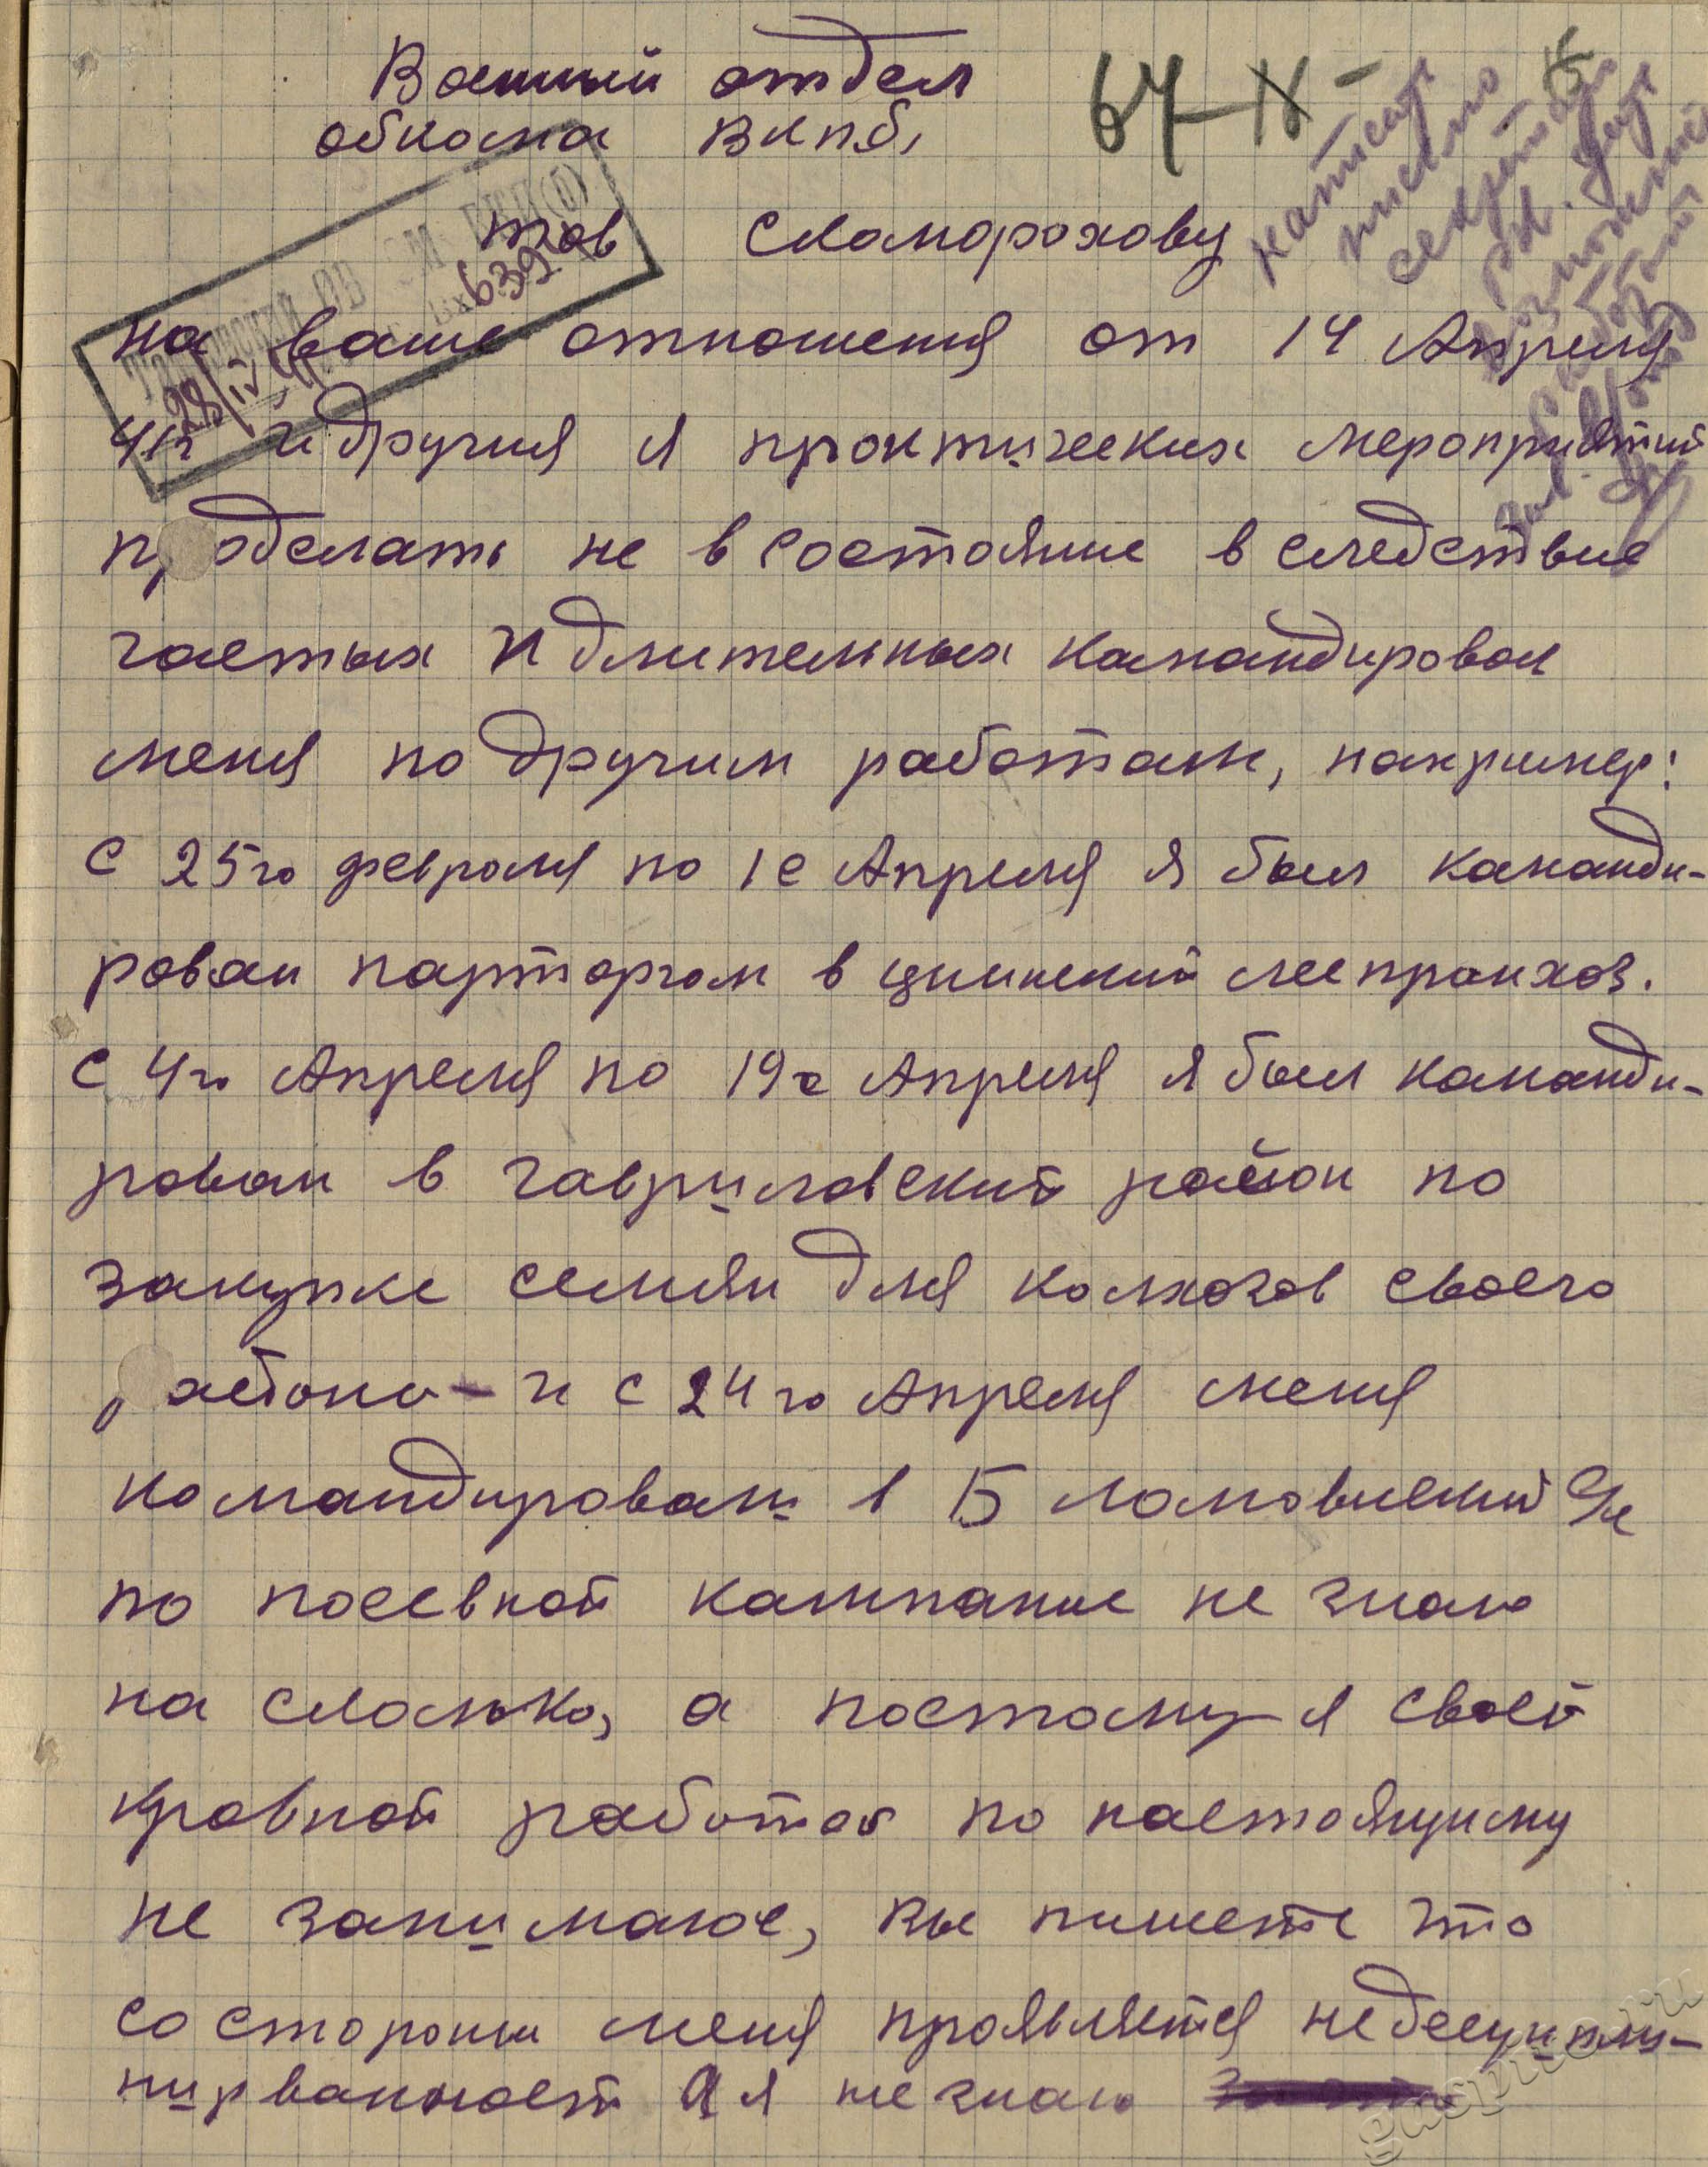 Военный отдел
обкома ВКПб,
тов Скоморохову
64-IX-
15
написать
письмо
секретарю
РК.
639
28/IV
на ваше отношения от 14 Апреля
41г и другия я проктических мероприятий
проделать не в состояние в следствие
частых и длительных камандировок
меня по другим работам, например:
с 25го февраля по 1е Апреля я был каманди-
рован парторгом в цнинский леспромхоз.
с 4го Апреля по 19е Апреля я был каманди-
рован в гавриловский район по
закупке семян для колхозов своего
района - и с 24го Апреля меня
командировали в Б ломовисский с/с
по посевной кампание не знаю
на сколько, а поетому я своей
кровной работой по настоящиму
не занимаюс, вы пишете что
со стороны меня проявляется недесципли-
нированност а я не знаю
gaspito.ru